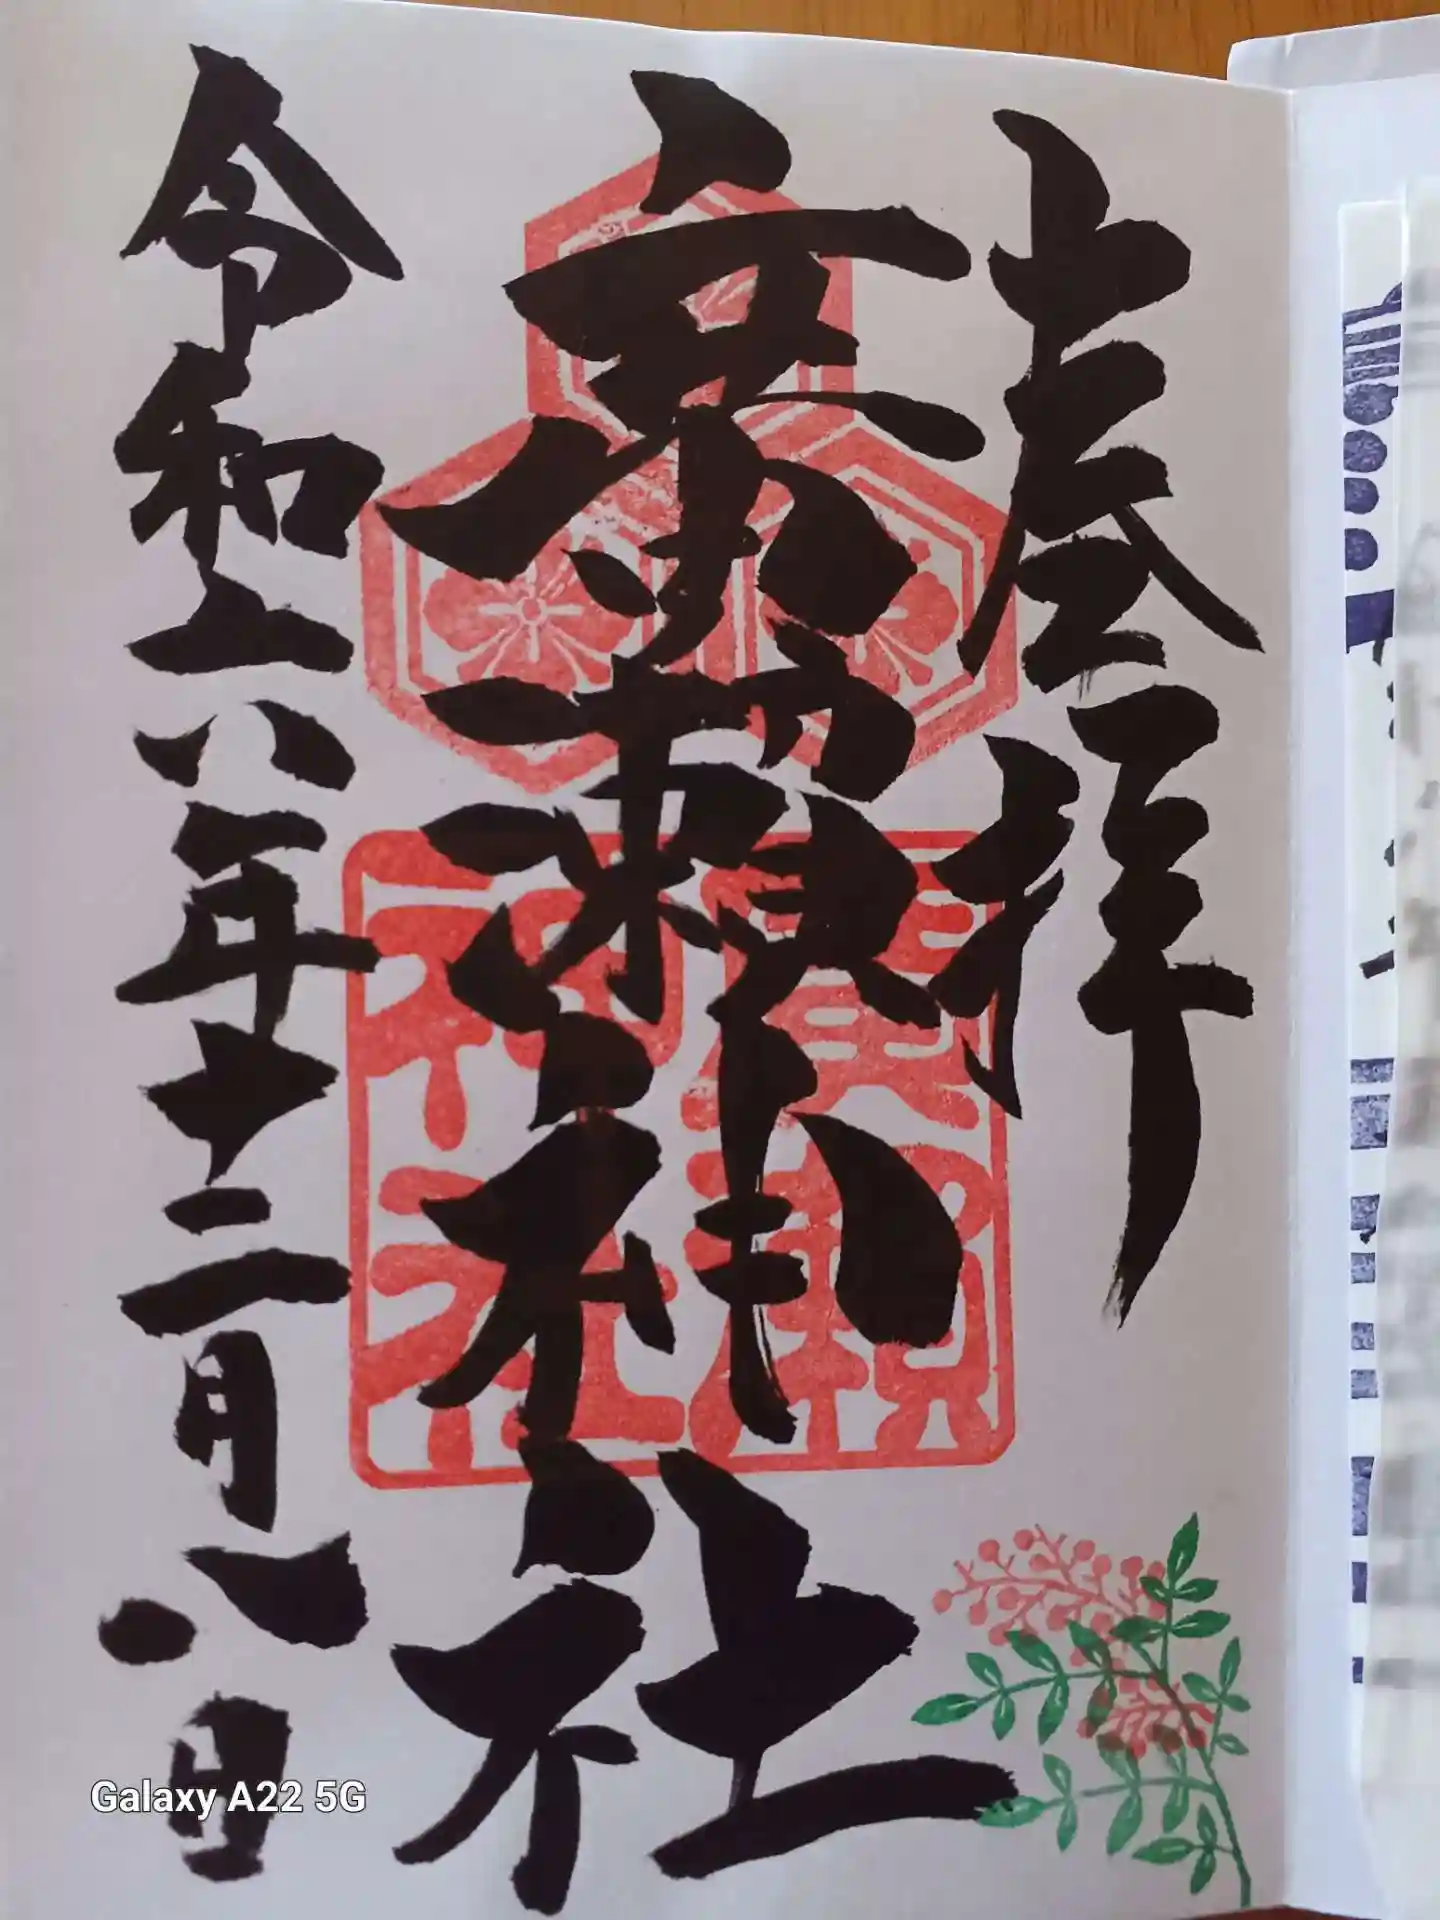 奉拝
廣瀬神社
令和六年十二月八日
廣瀬
神社
Galaxy A22 5G